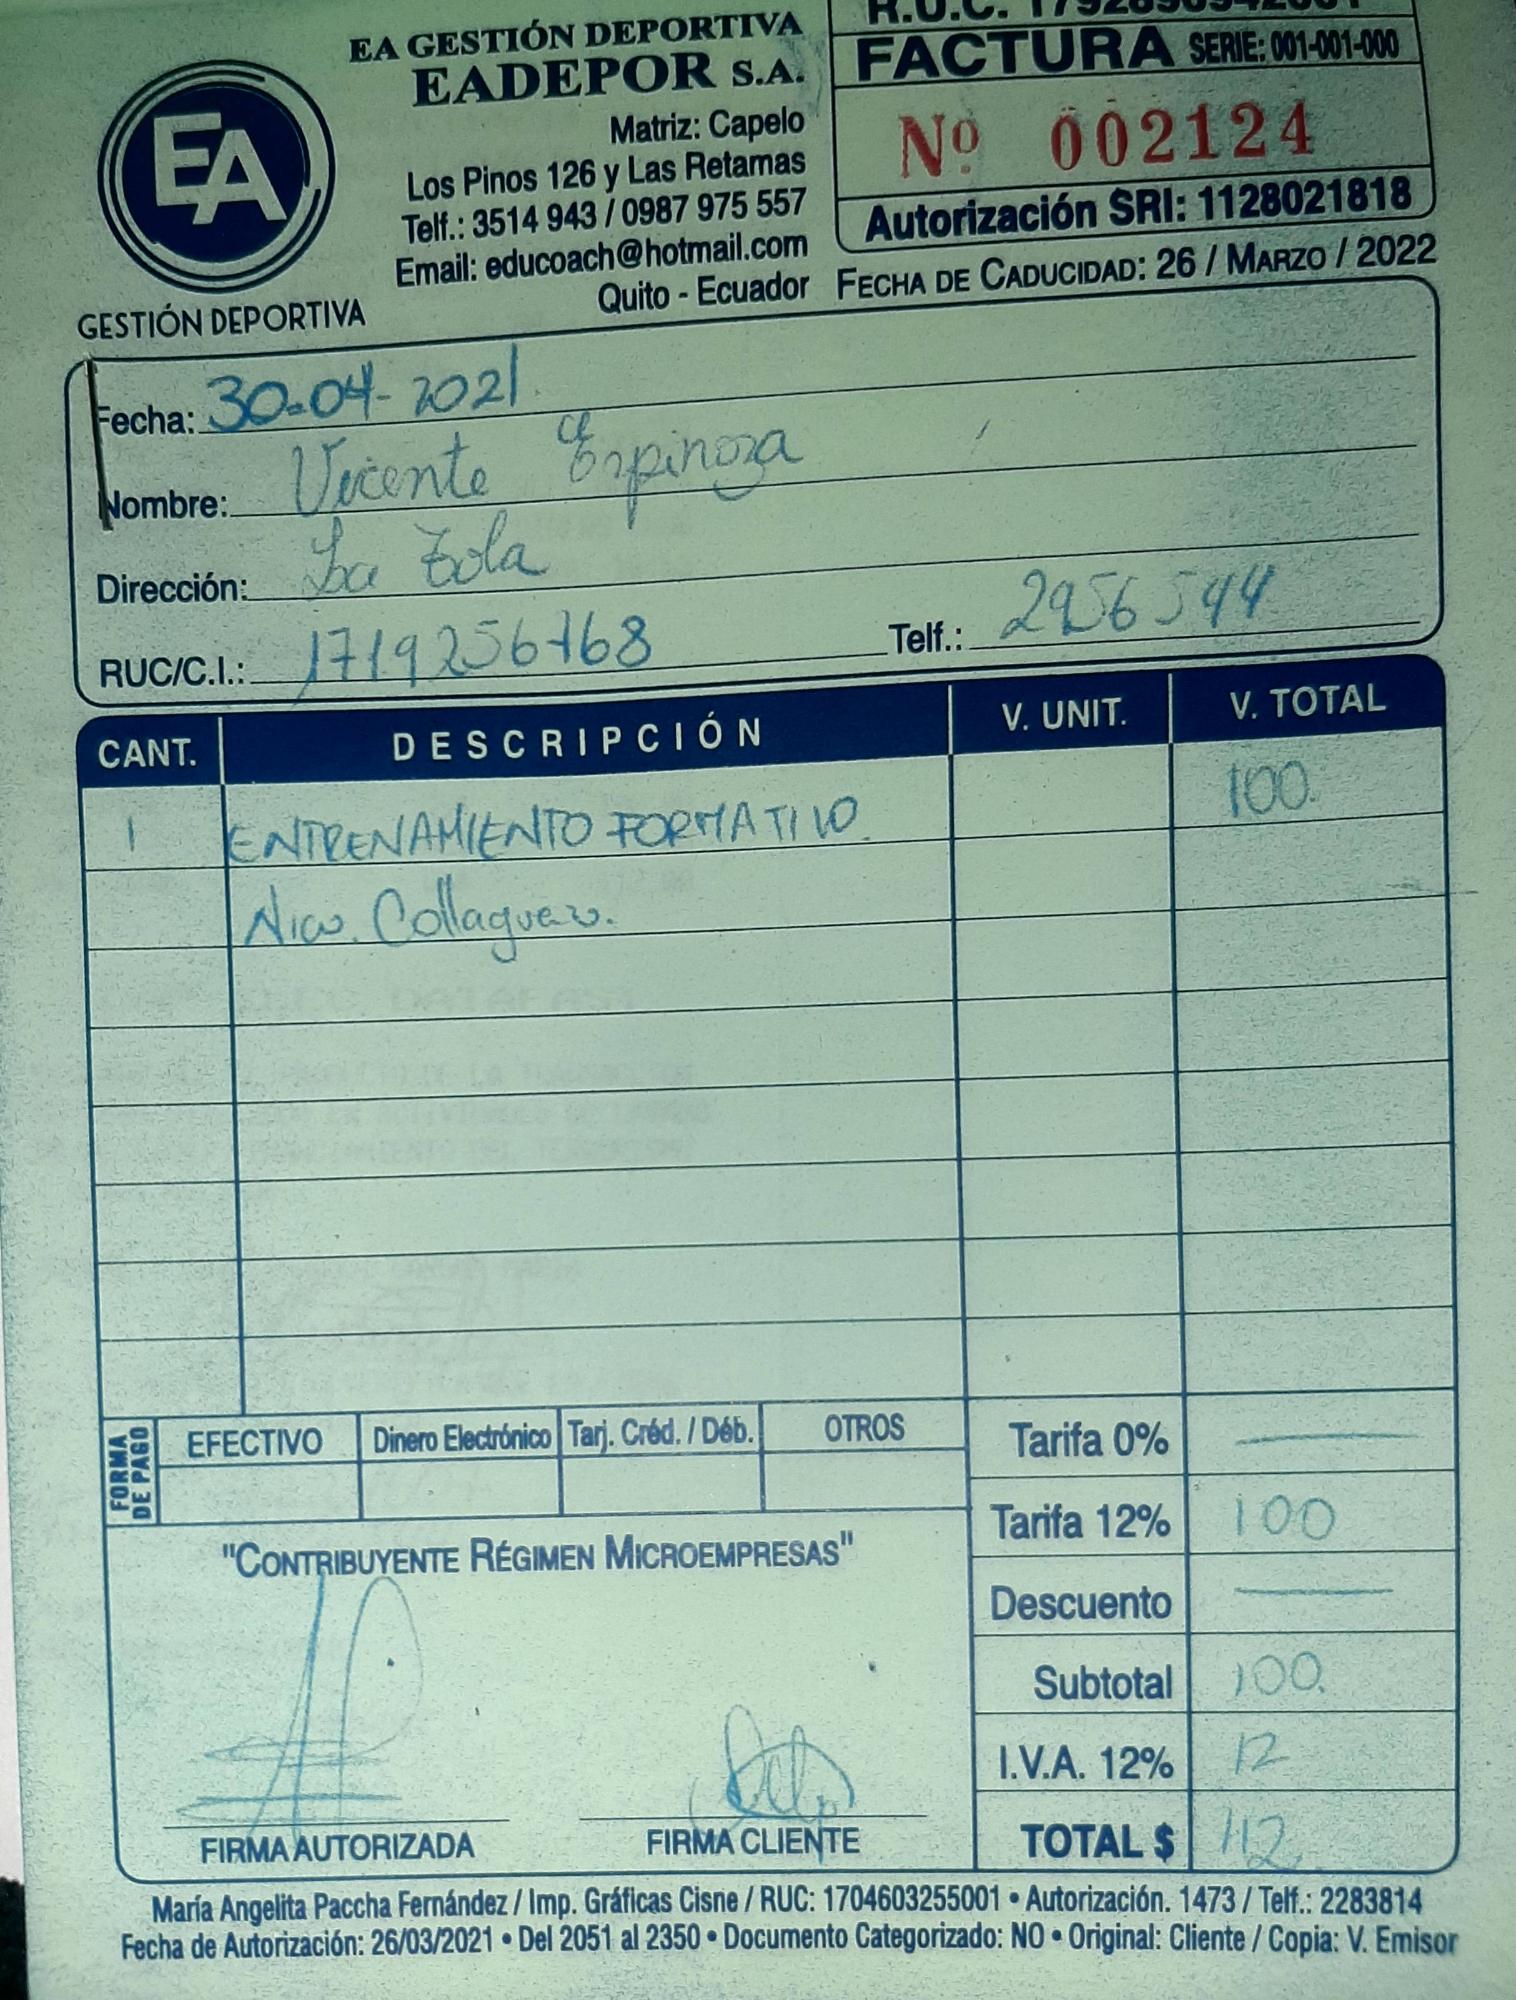 EA GESTIÓN DEPORTIVA
EADEPOR S.A.
Matriz: Capelo
Los Pinos 126 y Las Retamas
Telf.: 3514 943 / 0987 975 557
Email: educoach@hotmail.com
Quito - Ecuador
EA
GESTIÓN DEPORTIVA
R.U.C.
FACTURA SERIE: 001-001-000
Nº 002124
Autorización SRI: 1128021818
FECHA DE CADUCIDAD: 26 / MARZO / 2022
Fecha: 30-04-2021
Nombre: Vicente Espinoza
Dirección: La Tola
RUC/C.I.: 1719256768 Telf.: 2956544
CANT. DESCRIPCIÓN V. UNIT. V. TOTAL
1 ENTRENAMIENTO FORMATIVO 100.
Nico. Collaguazo.
FORMA DE PAGO EFECTIVO Dinero Electrónico Tarj. Créd. / Déb. OTROS
Tarifa 0% —
Tarifa 12% 100
Descuento —
Subtotal 100.
I.V.A. 12% 12
TOTAL $ 112
"CONTRIBUYENTE RÉGIMEN MICROEMPRESAS"
FIRMA AUTORIZADA FIRMA CLIENTE
María Angelita Paccha Fernández / Imp. Gráficas Cisne / RUC: 1704603255001 • Autorización. 1473 / Telf.: 2283814
Fecha de Autorización: 26/03/2021 • Del 2051 al 2350 • Documento Categorizado: NO • Original: Cliente / Copia: V. Emisor